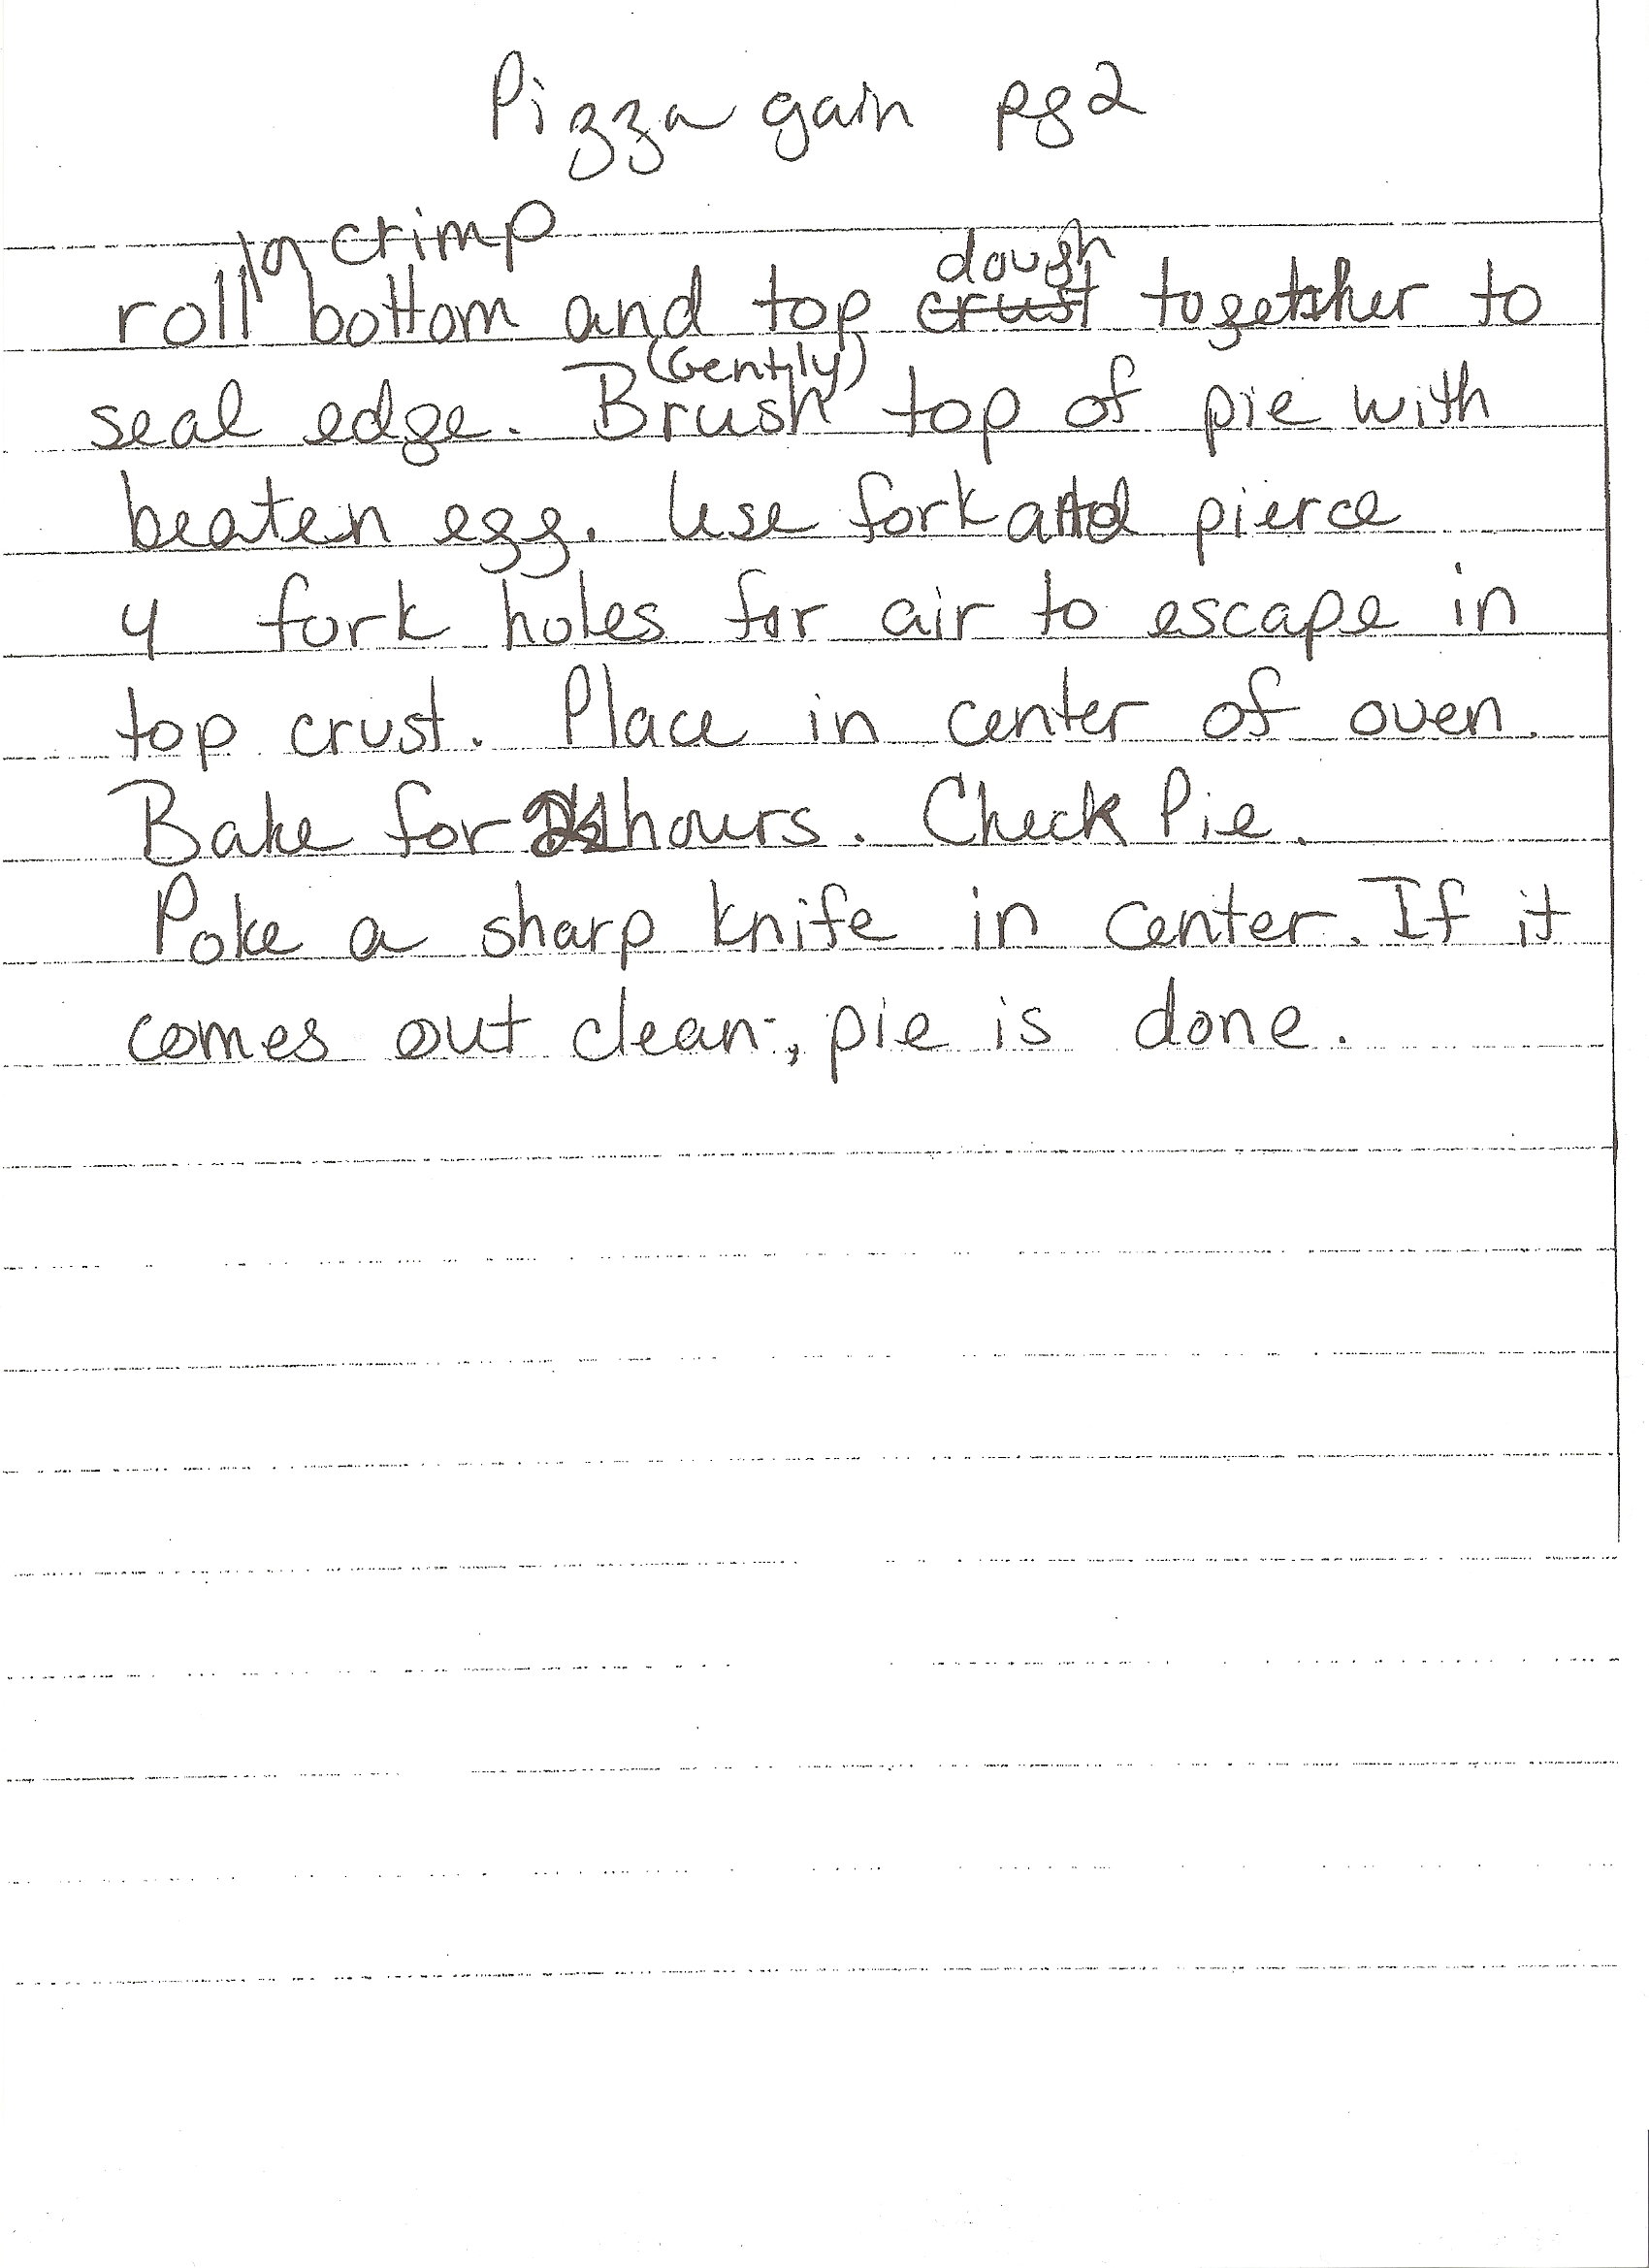 Pizza gain pg2
or crimp
dough
roll bottom and top crust together to
(Gently)
seal edge. Brush top of pie with
beaten egg. Use fork and pierce
4 fork holes for air to escape in
top crust. Place in center of oven.
Bake for hours. Check Pie.
Poke a sharp knife in center. If it
comes out clean, pie is done.